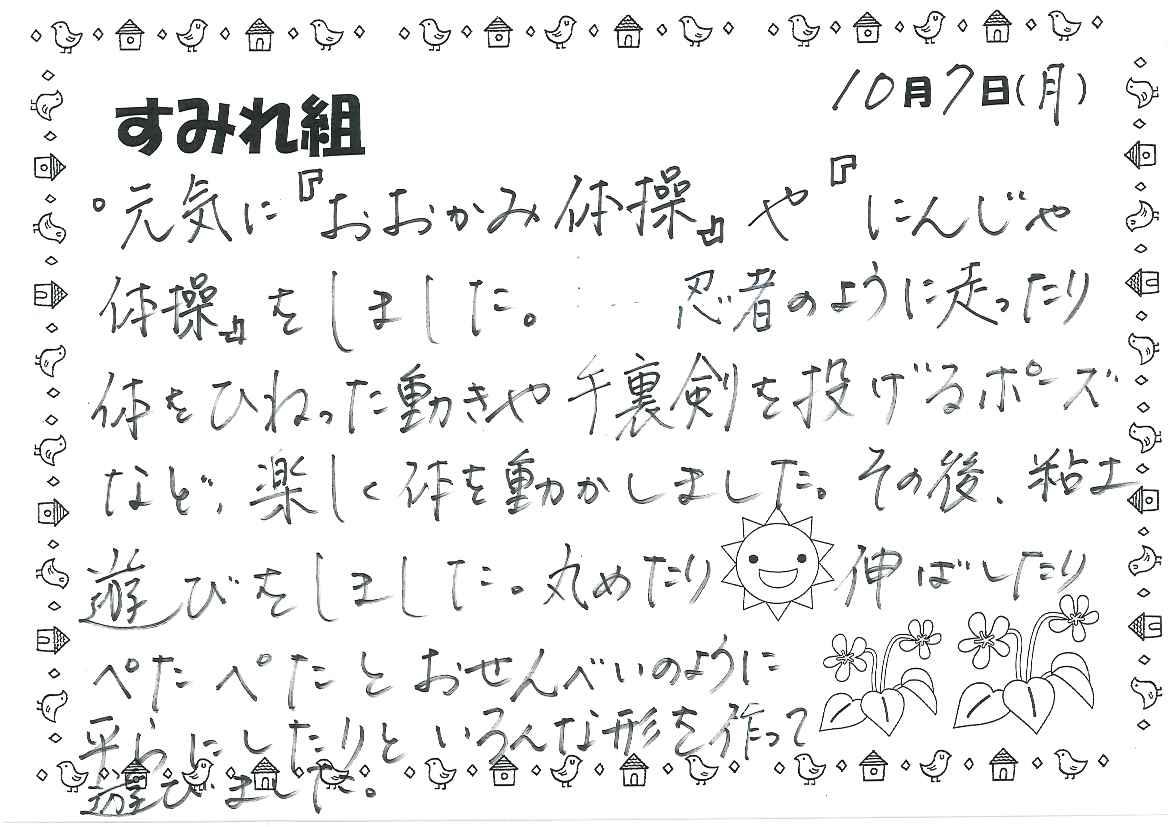 10月7日(月)
すみれ組
。元気に『おおかみ体操』や『にんじゃ
体操』をしました。 忍者のように走ったり
体をひねった動きや手裏剣を投げるポーズ
など、楽しく体を動かしました。その後、粘土
遊びをしました。丸めたり 伸ばしたり
ぺたぺたとおせんべいのように
平らにしたりといろんな形を作って
遊びました。